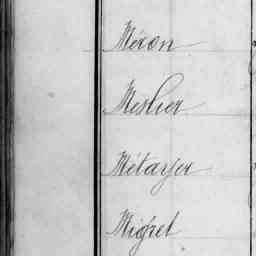 Méron
Meslier
Métayer
Mignet